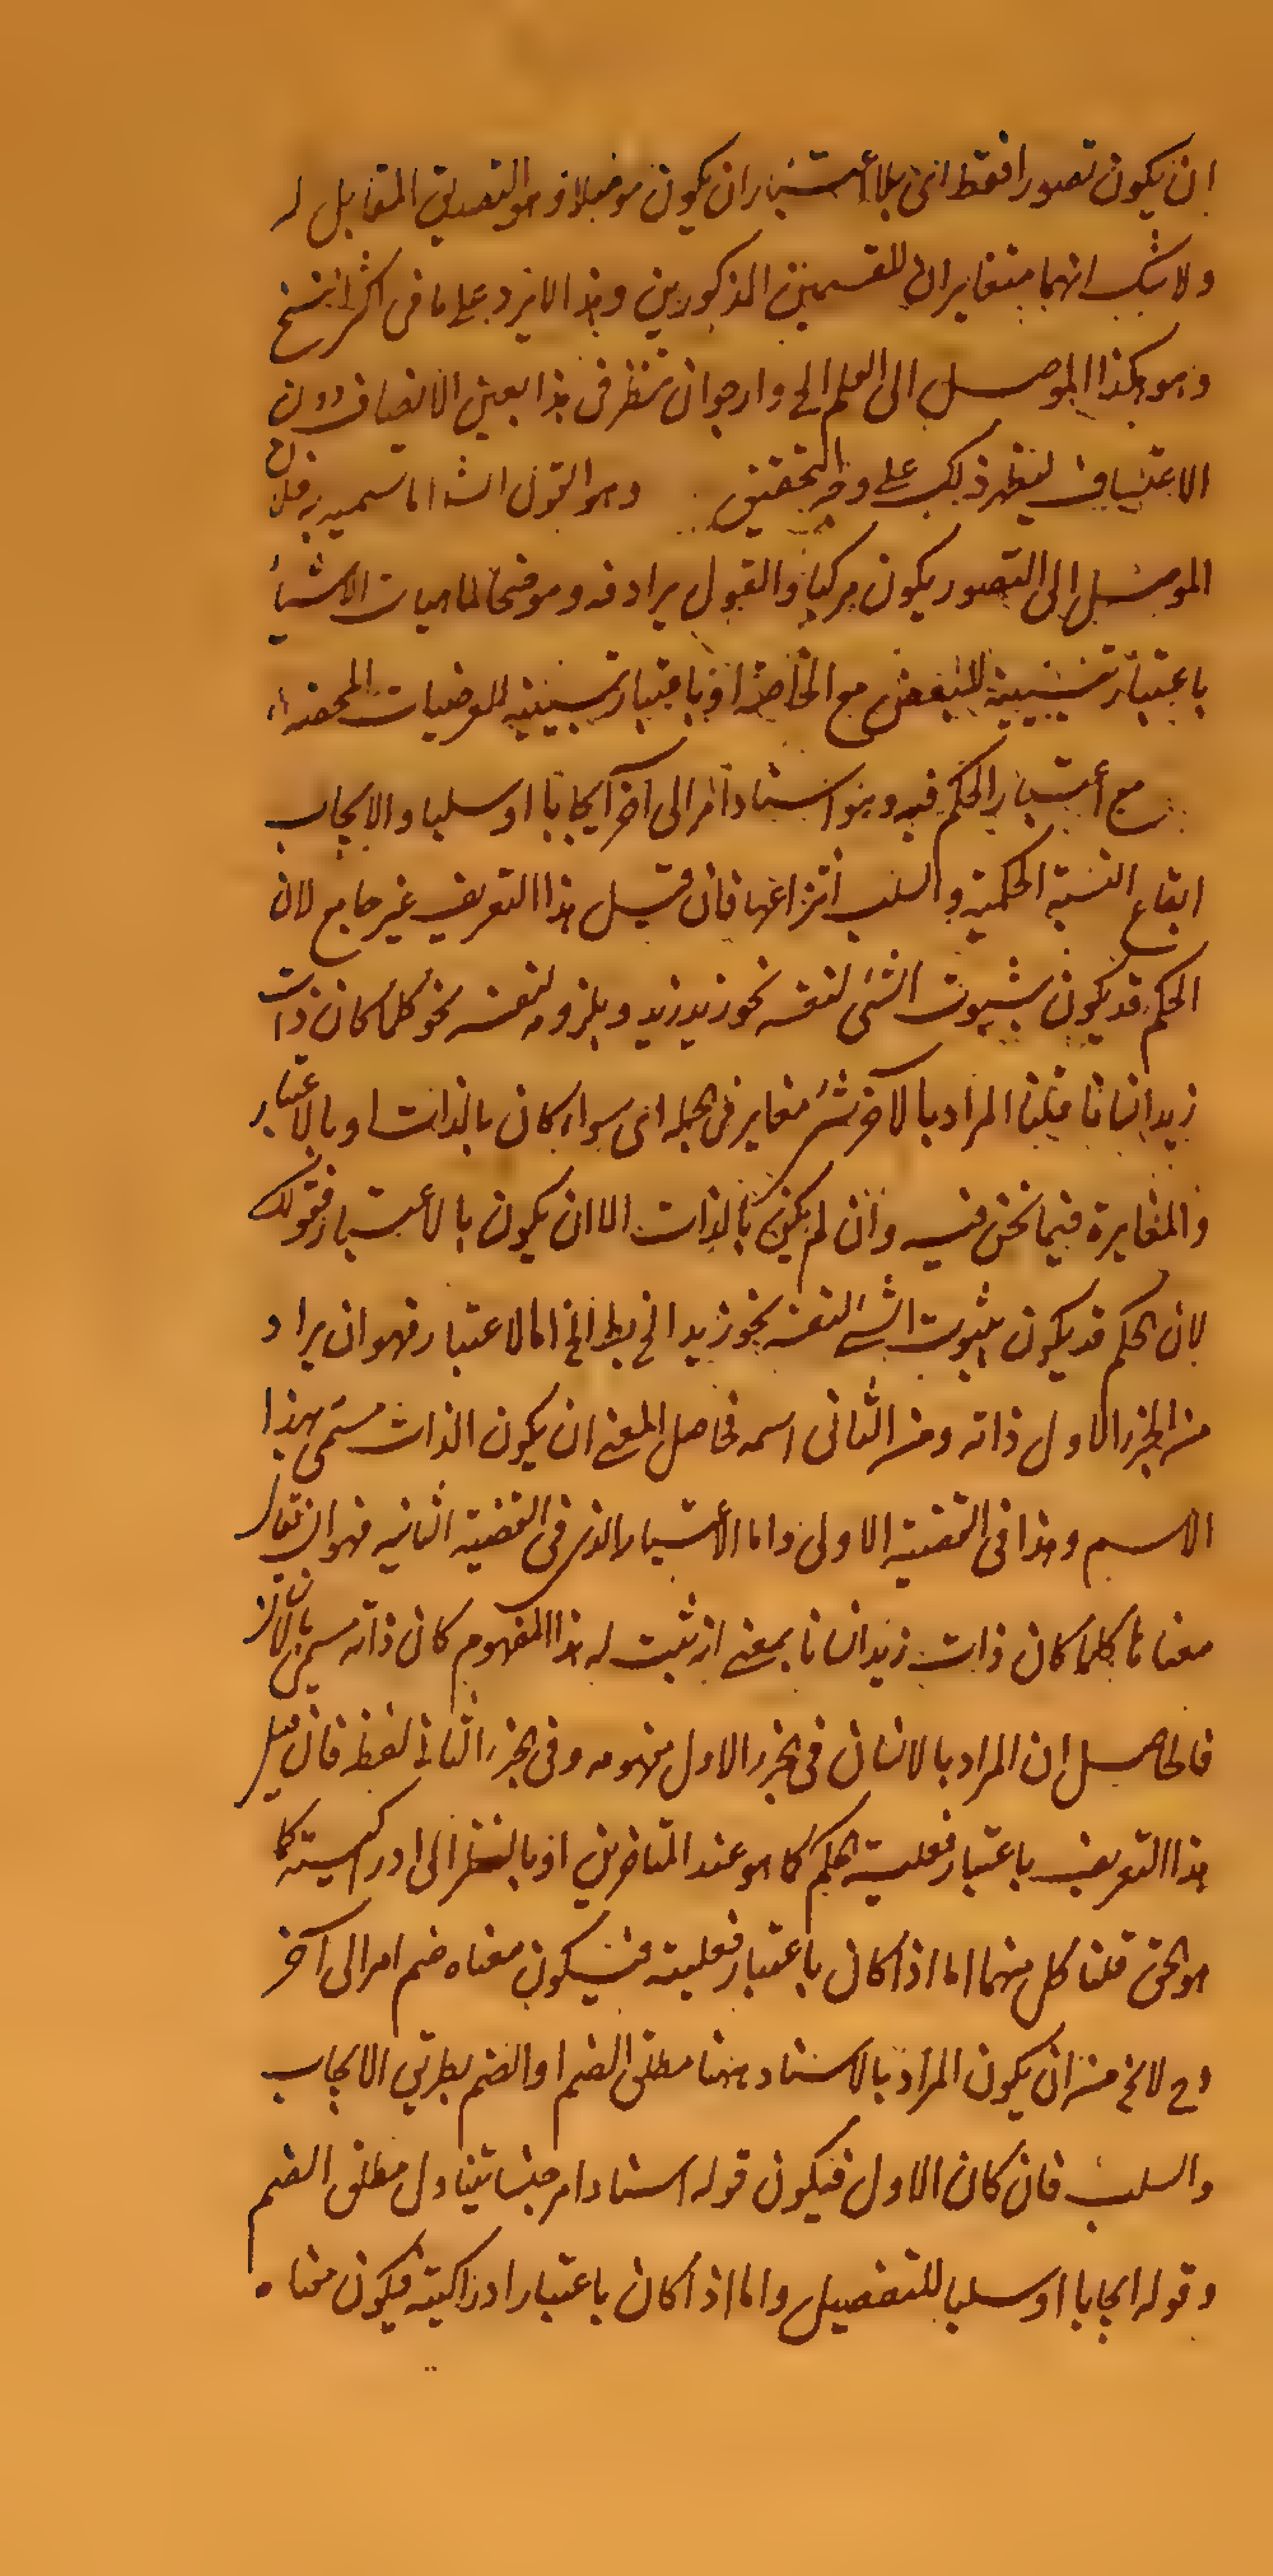 ان يكون تصورا فقط اى بلا اعتبار ان يكون موصلا او هو التصديق المقابل له
ولا شك انهما متغايران للقسمين المذكورين وهذا لا يرد على ما فى اكثر النسخ
وهو هكذا الموصل الى العلم الخ وارجو ان تنظر فى هذا بعين الانصاف دون
الاعتساف ليظهر ذلك على وجه التحقيق وهو القول الشا اما تسميه به فلان
الموصل الى التصور يكون مركبا والقول يرادفه وموضحا لماهيات الاشياء
باعتبار للبعض مع الخاصة او باعتبار للعرضيات المحضة
مع اعتبار الحكم فيه وهو اسناد امر الى آخر ايجابا او سلبا والايجاب
ايقاع النسبة الحكمية والسلب انتزاعها فان قيل هذا التعريف غير جامع لان
الحكم قد يكون بثبوت الشئ لنفسه نحو زيد زيد وبلزومه لنفسه نحو كلما كان ذات
زيد انسانا قلنا المراد بالآخر شئ مغاير فى الجمله اى سواء كان بالذات او بالاعتبار
والمغايرة فيما نحن فيه وان لم يكن بالذات الا ان يكون بالاعتبار فقولك
لان الحكم قد يكون بثبوت الشئ لنفسه نحو زيد الخ بط الخ اما الاعتبار فهو ان يراد
من الجزء الاول ذاته ومن الثانى اسمه فحاصل المعنى ان يكون الذات مسمى بهذا
الاسم وهذا فى القضية الاولى واما الاعتبار الذى فى القضية الثانيه فهو ان يقال
معناها كلما كان ذات زيد انسانا بمعنى انه ثبت له هذا المفهوم كان ذاته مسمى بالانسان
فالحاصل ان المراد بالانسان فى الجزء الاول مفهومه وفى الجزء الثانى لفظه فان قيل
هذا التعريف باعتبار فعلية الحكم كما هو عند المتاخرين او بالنظر الى ادراكيته كما
هو الحق قلنا كل منهما اما اذا كان باعتبار فعليته فيكون معناه ضم امر الى آخر
وح لا يخ من ان يكون المراد بالاسناد ههنا مطلق الضم او الضم بطريق الايجاب
والسلب فان كان الاول فيكون قوله اسناد امر جنسا يتناول مطلق الضم
وقوله ايجابا او سلبا للتفصيل واما اذا كان باعتبار ادراكيته فيكون معناه